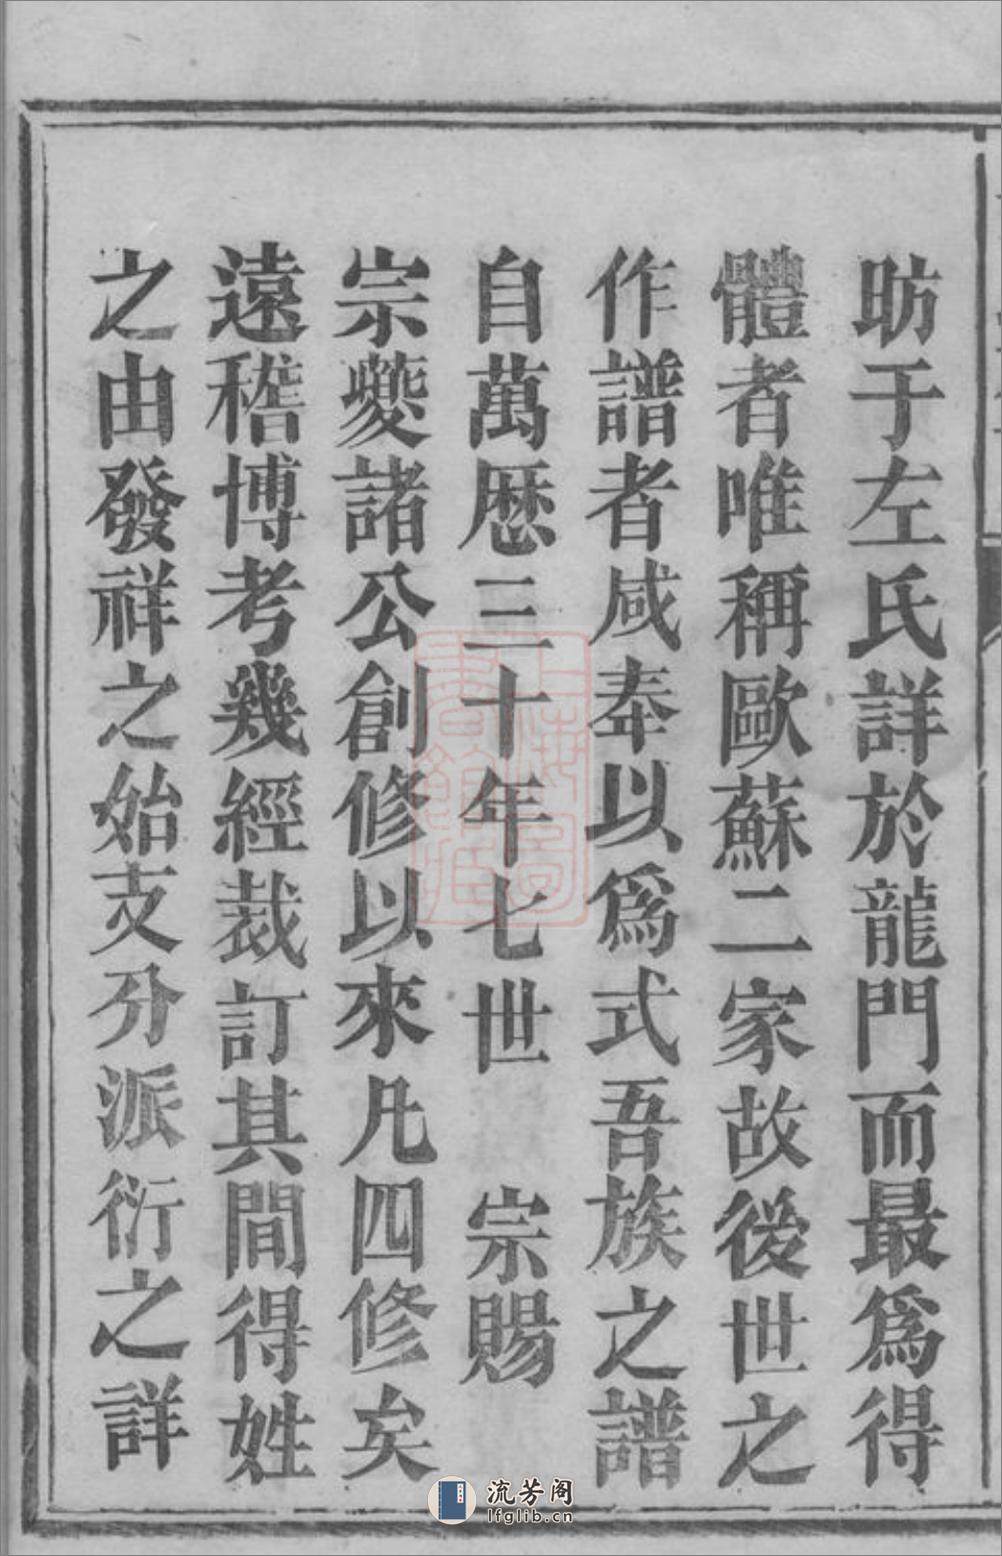 昉于左氏詳於龍門而最爲得
體者唯稱歐蘇二家故後世之
作譜者咸奉以爲式吾族之譜
自萬厯三十年七世　宗賜
宗夔諸公創修以來凡四修矣
遠稽博考幾經裁訂其間得姓
之由發祥之始支分派衍之詳
上海圖書館藏
流芳阁
lfglib.cn